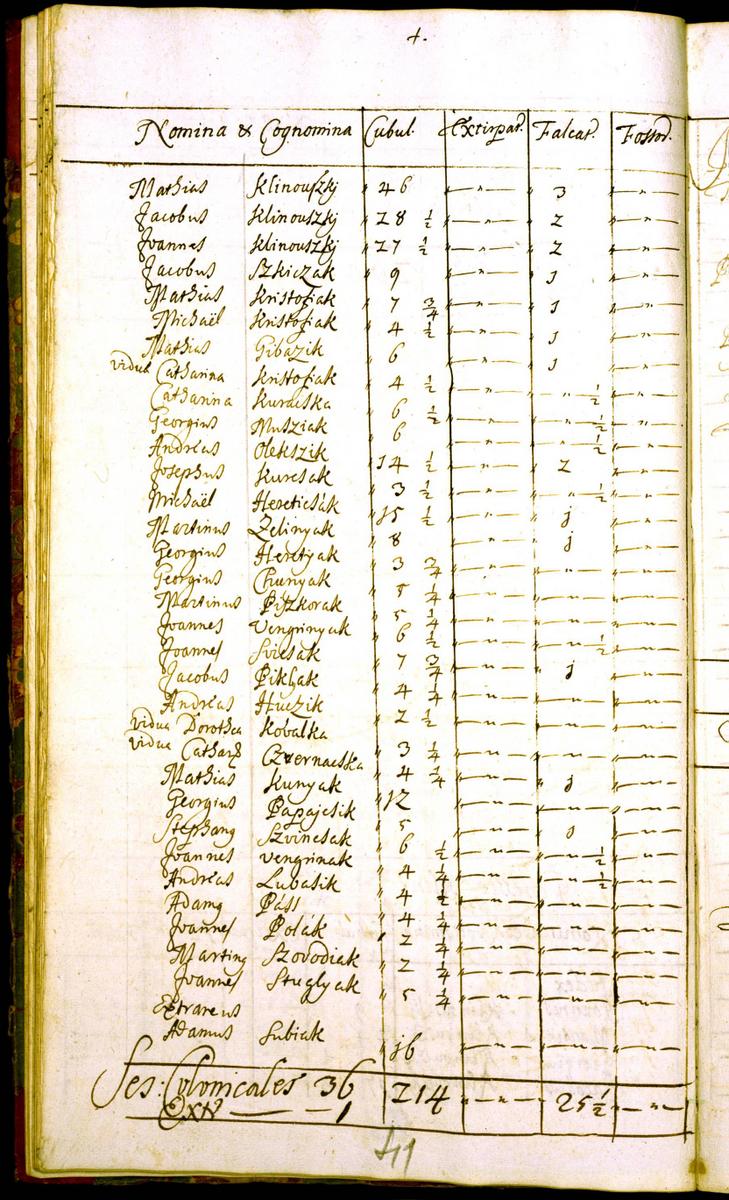 4.
Nomina & Cognomina Cubul. Extirpat. Falcat. Fossor.
Mathias Klinouszkj " 46 " — " — 3 " — " —
Jacobus Klinouszkj " 28 ½ " — " — 2 " — " —
Joannes Klinouszkj " 27 ½ " — " — 2 " — " —
Jacobus Szkiczak " 9 " — " — 1 " — " —
Mathias Kristofiak " 7 ¾ " — " — 1 " — " —
Michaël Kristofiak " 4 ½ " — " — 1 " — " —
Mathias Gibazik " 6 " — " — 1 " — " —
vidua Catharina Kristofiak " 4 ½ " — " — " — " ½ " — " —
Catharina Kuracska " 6 ½ " — " — " — " ½ " — " —
Georgius Musziak " 6 " — " — " — " ½ " — " —
Andreas Olekszik " 14 ½ " — " — 2 " — " —
Josephus Kurcsak " 3 ½ " — " — " — " ½ " — " —
Michaël Hereticsák " 15 ½ " — " — j " — " —
Martinus Zelinyak " 8 " — " — j " — " —
Georgius Heretyak " 3 ¾ " — " — " — " — " — " —
Georgius Chunyak " 5 ¼ " — " — " — " — " — " —
Martinus Piszkorak " 5 ¼ " — " — " — " — " — " —
Joannes Vengrinyak " 6 ½ " — " — " — " ½ " — " —
Joannes Svicsak " 7 ¾ " — " — j " — " —
Jacobus Pikljak " 4 ¼ " — " — " — " — " — " —
Andreas Huczik " 2 ½ " — " — " — " — " — " —
vidua Dorothea Kobalka
vidua Czvernacska " 3 ¼ " — " — " — " — " — " —
Mathias Kunyak " 4 ¼ " — " — j " — " —
Georgius Papajcsik " 12 " — " — " — " — " — " —
Stephang Szvincsak " 5 " — " — 1 " — " —
Joannes Vengrinak " 6 ½ " — " — " — " ½ " — " —
Andreas Lubasik " 4 ¼ " — " — " — " ½ " — " —
Adamg Páss " 4 ½ " — " — " — " — " — " —
Joannes Polák " 4 ¼ " — " — " — " — " — " —
Marting Szovodiak " 2 ¼ " — " — " — " — " — " —
Joannes Stuglyak " 2 ¼ " — " — " — " — " — " —
Extraneus " 5 ¾ " — " — " — " — " — " —
Adamus Subiak " j6 " — " — " — " — " — " —
Ses. Colonicales 36 214 " — " — 25 ½ " — " —
Extr — — 1
41